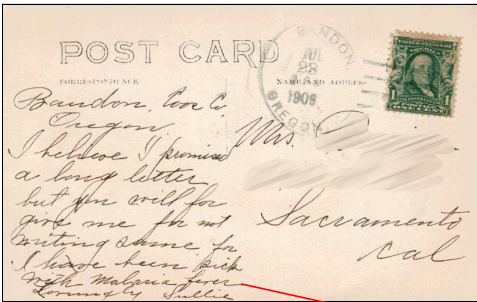 POST CARD
CORRESPONDENCE
NAME AND ADDRESS
BANDON
JUL
23
1906
OREGON
1
Bandon, Coos Co
Oregon.
I believe I promised
a long letter
but you will for
give me for not
writing same for
I have been sick
with malaria fever
Lovingly Sallie
Mrs.
Sacramento
Cal